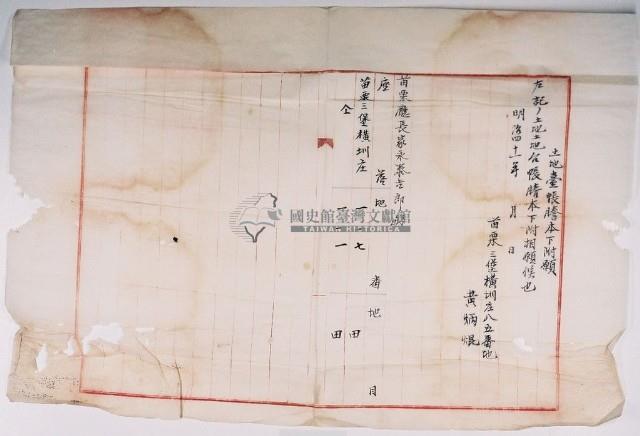 土地臺帳謄本下附願
左記ノ土地土地台帳謄本下附相願候也
明治四十一年 月 日
苗栗三堡横圳庄八五番地
黄炳焜
苗栗廳長家永泰吉郎
座 落 地 番 地 目
苗栗三堡横圳庄 一 七 田
仝 一 一 田
國史館臺灣文獻館
TAIWAN HISTORICA